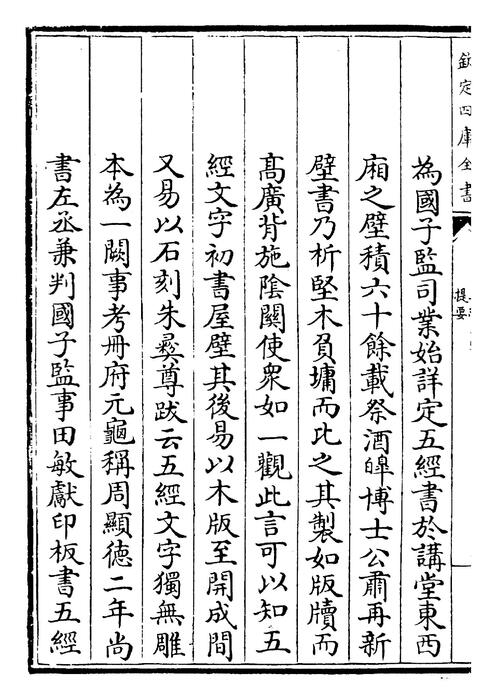 欽定四庫全書
提要
為國子監司業始詳定五經書於講堂東西
廂之壁積六十餘載祭酒皥博士公肅再新
壁書乃析堅木負墉而比之其製如版牘而
髙廣背施陰關使衆如一觀此言可以知五
經文字初書屋壁其後易以木版至開成間
又易以石刻朱彛尊跋云五經文字獨無雕
本為一闕事考冊府元龜稱周顯徳二年尚
書左丞兼判國子監事田敏獻印板書五經